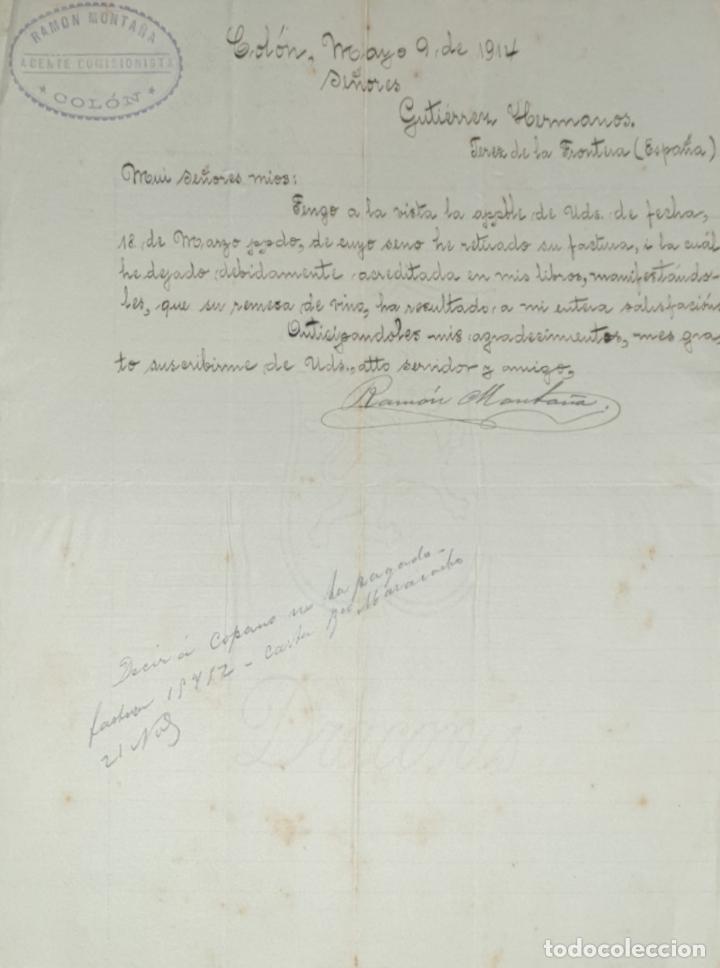 RAMON MONTAÑA
AGENTE COMISIONISTA
COLÓN
Colón, Mayo 9, de 1914
Señores
Gutiérrez Hermanos.
Jerez de la Frontera (España)
Mui señores mios:
Tengo a la vista la appble de Uds. de fecha,
18 de Marzo ppdo, de cuyo seno he retirado su factura, i la cuál
he dejado debidamente acreditada en mis libros, manifestándo-
les, que su remesa de vino, ha resultado a mi entera satisfación
Anticipandoles mis agradecimentos, mes gra-
to suscribirme de Uds., atto servidor y amigo,
Ramón Montaña.
Decir á Copano no ha pagado
factura - Carta Maracaibo
21 Nov
Draconis
todocoleccion
todocoleccion.net